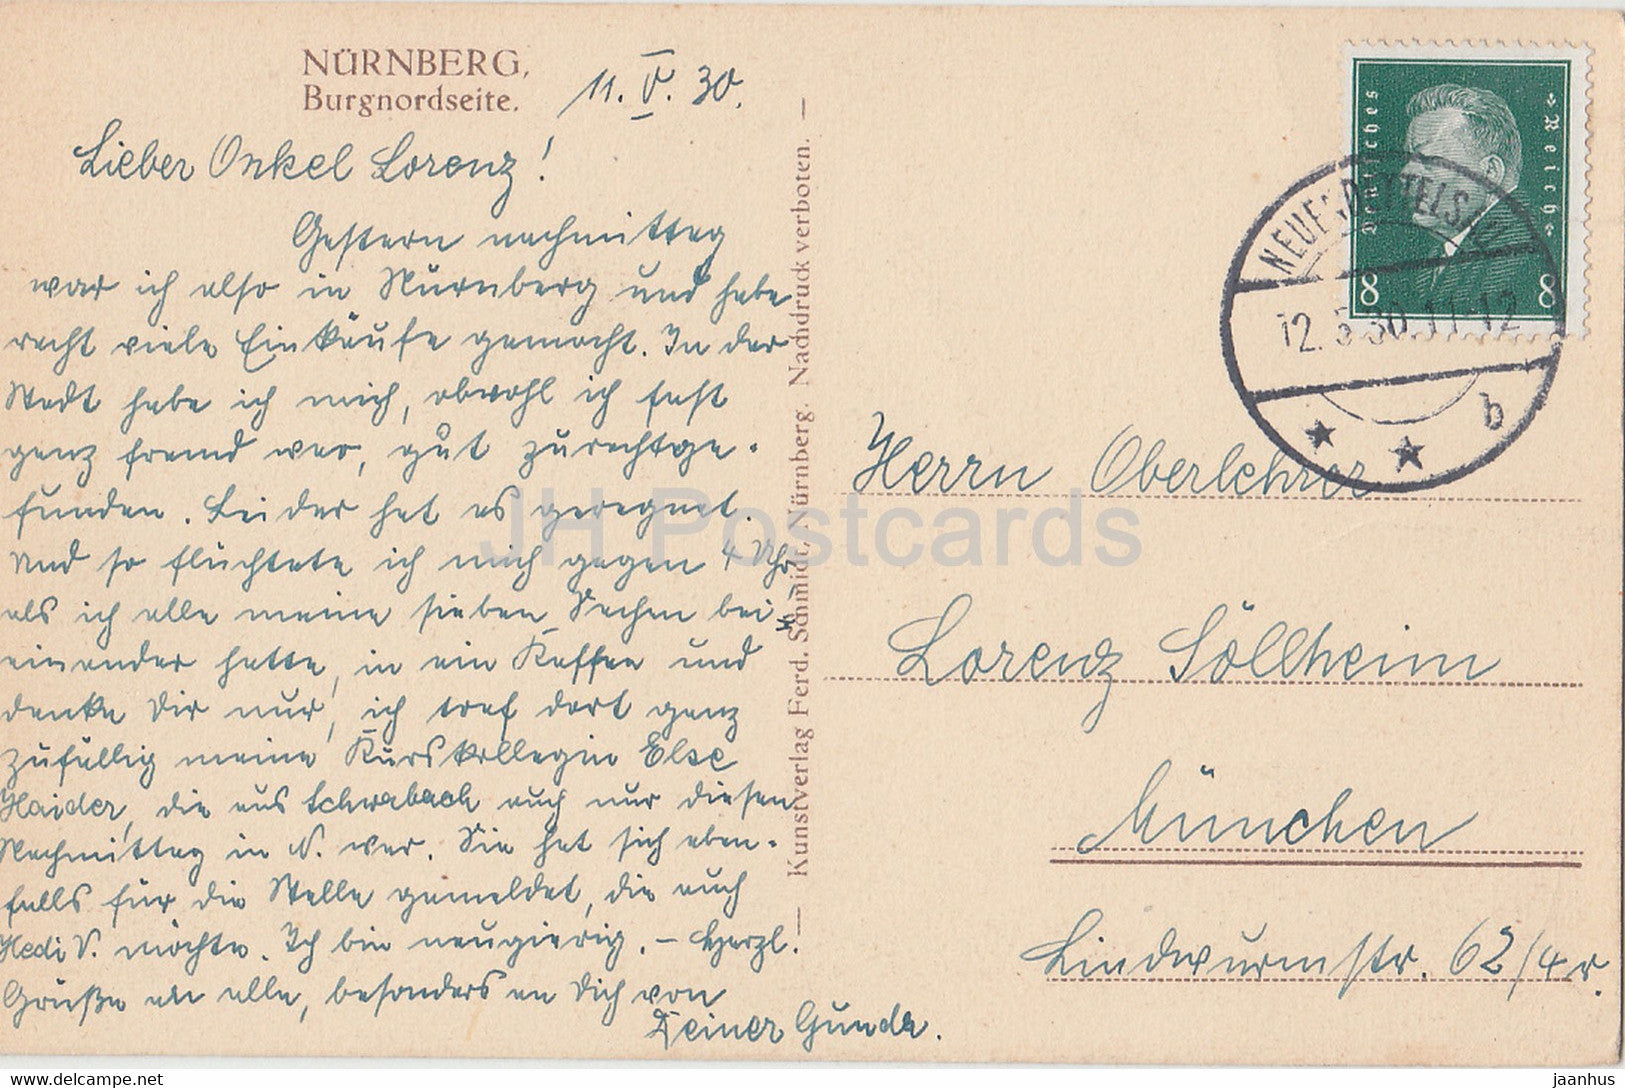 NÜRNBERG,
Burgnordseite.
11. V. 30.
Lieber Onkel Lorenz!
Gestern nachmittag
war ich also in Nürnberg und habe
recht viele Einkäufe gemacht. In der
Stadt habe ich mich, obwohl ich fast
ganz fremd war, gut zurechtge-
funden. Leider hat es geregnet.
Und so flüchtete ich mich gegen 4 Uhr
als ich alle meine sieben Sachen bei-
einander hatte, in ein Kaffee und
denke Dir nur, ich traf dort ganz
zufällig meine Kurskollegin Else
Haider, die aus Schwabach auch nur diesen
Nachmittag in N. war. Sie hat sich eben-
falls für die Stelle gemeldet, die auch
Hedi V. möchte. Ich bin neugierig. – Herzl.
Grüße an alle, besonders an Dich von
Deiner Gunda.
Kunstverlag Ferd. Schmidt, Nürnberg. Nachdruck verboten.
Deutsches Reich
8 8
NEUENDETTELSAU
12. 5. 30. 11-12
b
Herrn Oberlehrer
Lorenz Söllheim
München
Lindwurmstr. 62/4 r.
JH Postcards
www.delcampe.net
jaanhus